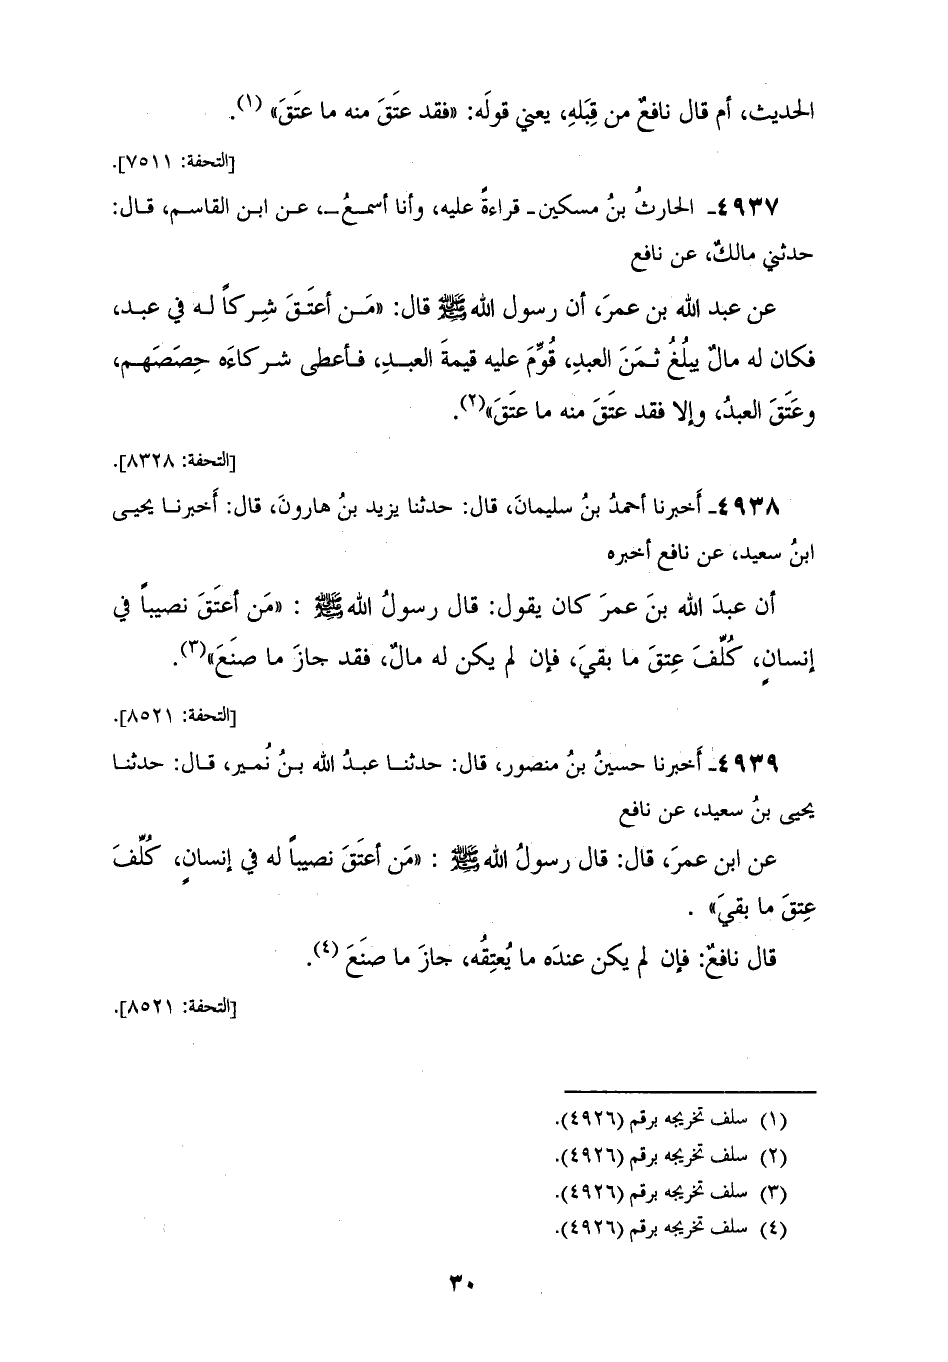 الحديث، أم قال نافعٌ من قِبَلهِ، يعني قولَه: «فقد عتَقَ منه ما عتَقَ» (١).
[التحفة: ٧٥١١].
٤٩٣٧ـ الحارثُ بنُ مسكين ـ قراءةً عليه، وأنا أسمعُ ـ، عن ابن القاسم، قال:
حدثني مالكٌ، عن نافع
عن عبد الله بن عمرَ، أن رسول الله ﷺ قال: «مَن أعتَقَ شِركاً له في عبد،
فكان له مالٌ يبلُغُ ثمَنَ العبدِ، قُوِّمَ عليه قيمةَ العبدِ، فأعطى شركاءَه حِصَصَهم،
وعَتَقَ العبدُ، وإلا فقد عتَقَ منه ما عتَقَ»(٢).
[التحفة: ٨٣٢٨].
٤٩٣٨ـ أَخبرنا أحمدُ بنُ سليمانَ، قال: حدثنا يزيد بنُ هارونَ، قال: أَخبرنا يحيى
ابنُ سعيد، عن نافع أخبره
أن عبدَ الله بنَ عمرَ كان يقول: قال رسولُ الله ﷺ : «مَن أعتَقَ نصيباً في
إنسانٍ، كُلِّفَ عِتقَ ما بقيَ، فإن لم يكن له مالٌ، فقد جازَ ما صنَعَ»(٣).
[التحفة: ٨٥٢١].
٤٩٣٩ـ أَخبرنا حسينُ بنُ منصور، قال: حدثنا عبدُ الله بنُ نُمير، قال: حدثنا
يحيى بنُ سعيد، عن نافع
عن ابن عمرَ، قال: قال رسولُ الله ﷺ : «مَن أعتَقَ نصيباً له في إنسانٍ، كُلِّفَ
عِتقَ ما بقيَ» .
قال نافعٌ: فإن لم يكن عندَه ما يُعتِقُه، جازَ ما صنَعَ (٤).
[التحفة: ٨٥٢١].
(١) سلف تخريجه برقم (٤٩٢٦).
(٢) سلف تخريجه برقم (٤٩٢٦).
(٣) سلف تخريجه برقم (٤٩٢٦).
(٤) سلف تخريجه برقم (٤٩٢٦).
٣٠